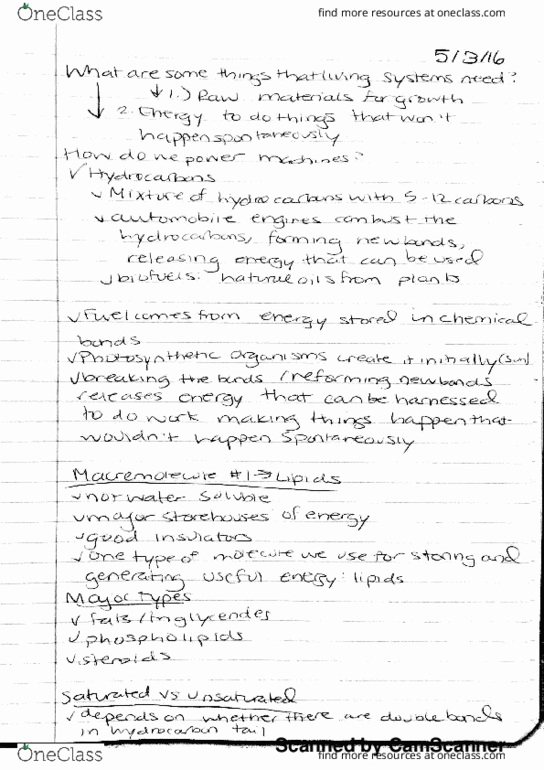 OneClass
find more resources at oneclass.com
5/3/16
What are some things that living systems need?
1.) Raw materials for growth
2. Energy to do things that won't
happen spontaneously
How do we power machines?
Hydrocarbons
Mixture of hydrocarbons with 5-12 carbons
automobile engines combust the
hydrocarbons, forming new bonds,
releasing energy that can be used
biofuels: natural oils from plants
Fuel comes from energy stored in chemical
bonds
Photosynthetic organisms create it initially (sun)
breaking the bonds / reforming new bonds
releases energy that can be harnessed
to do work making things happen that
wouldn't happen spontaneously
Macromolecule #1 → Lipids
not water soluble
major storehouses of energy
good insulators
one type of molecule we use for storing and
generating useful energy: lipids
Major Types
fats/triglycerides
phospholipids
steroids
Saturated vs unsaturated
depends on whether there are double bonds
in hydrocarbon tail
Scanned by CamScanner
OneClass
find more resources at oneclass.com